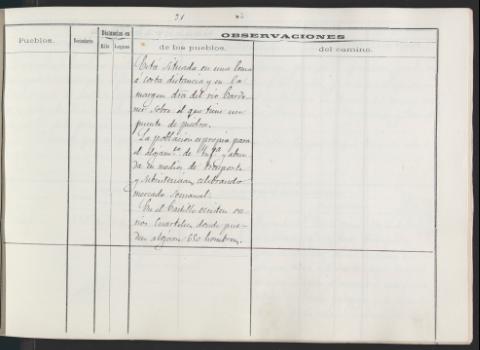 31
Pueblos.
Vecindario
Distancias en
Kils Leguas
OBSERVACIONES
de los pueblos.
del camino.
Está situada en una loma
á corta distancia y en la
margen dra del rio Cardo
ner sobre el que tiene un
puente de piedra.
La poblacion es propia para
el alojam.to de Inf.a y abun
da en medios de trasporte
y subsistencias, celebrando
mercado semanal.
En el Castillo existen va
rios Cuarteles donde pue-
den alojarse 650 hombres.